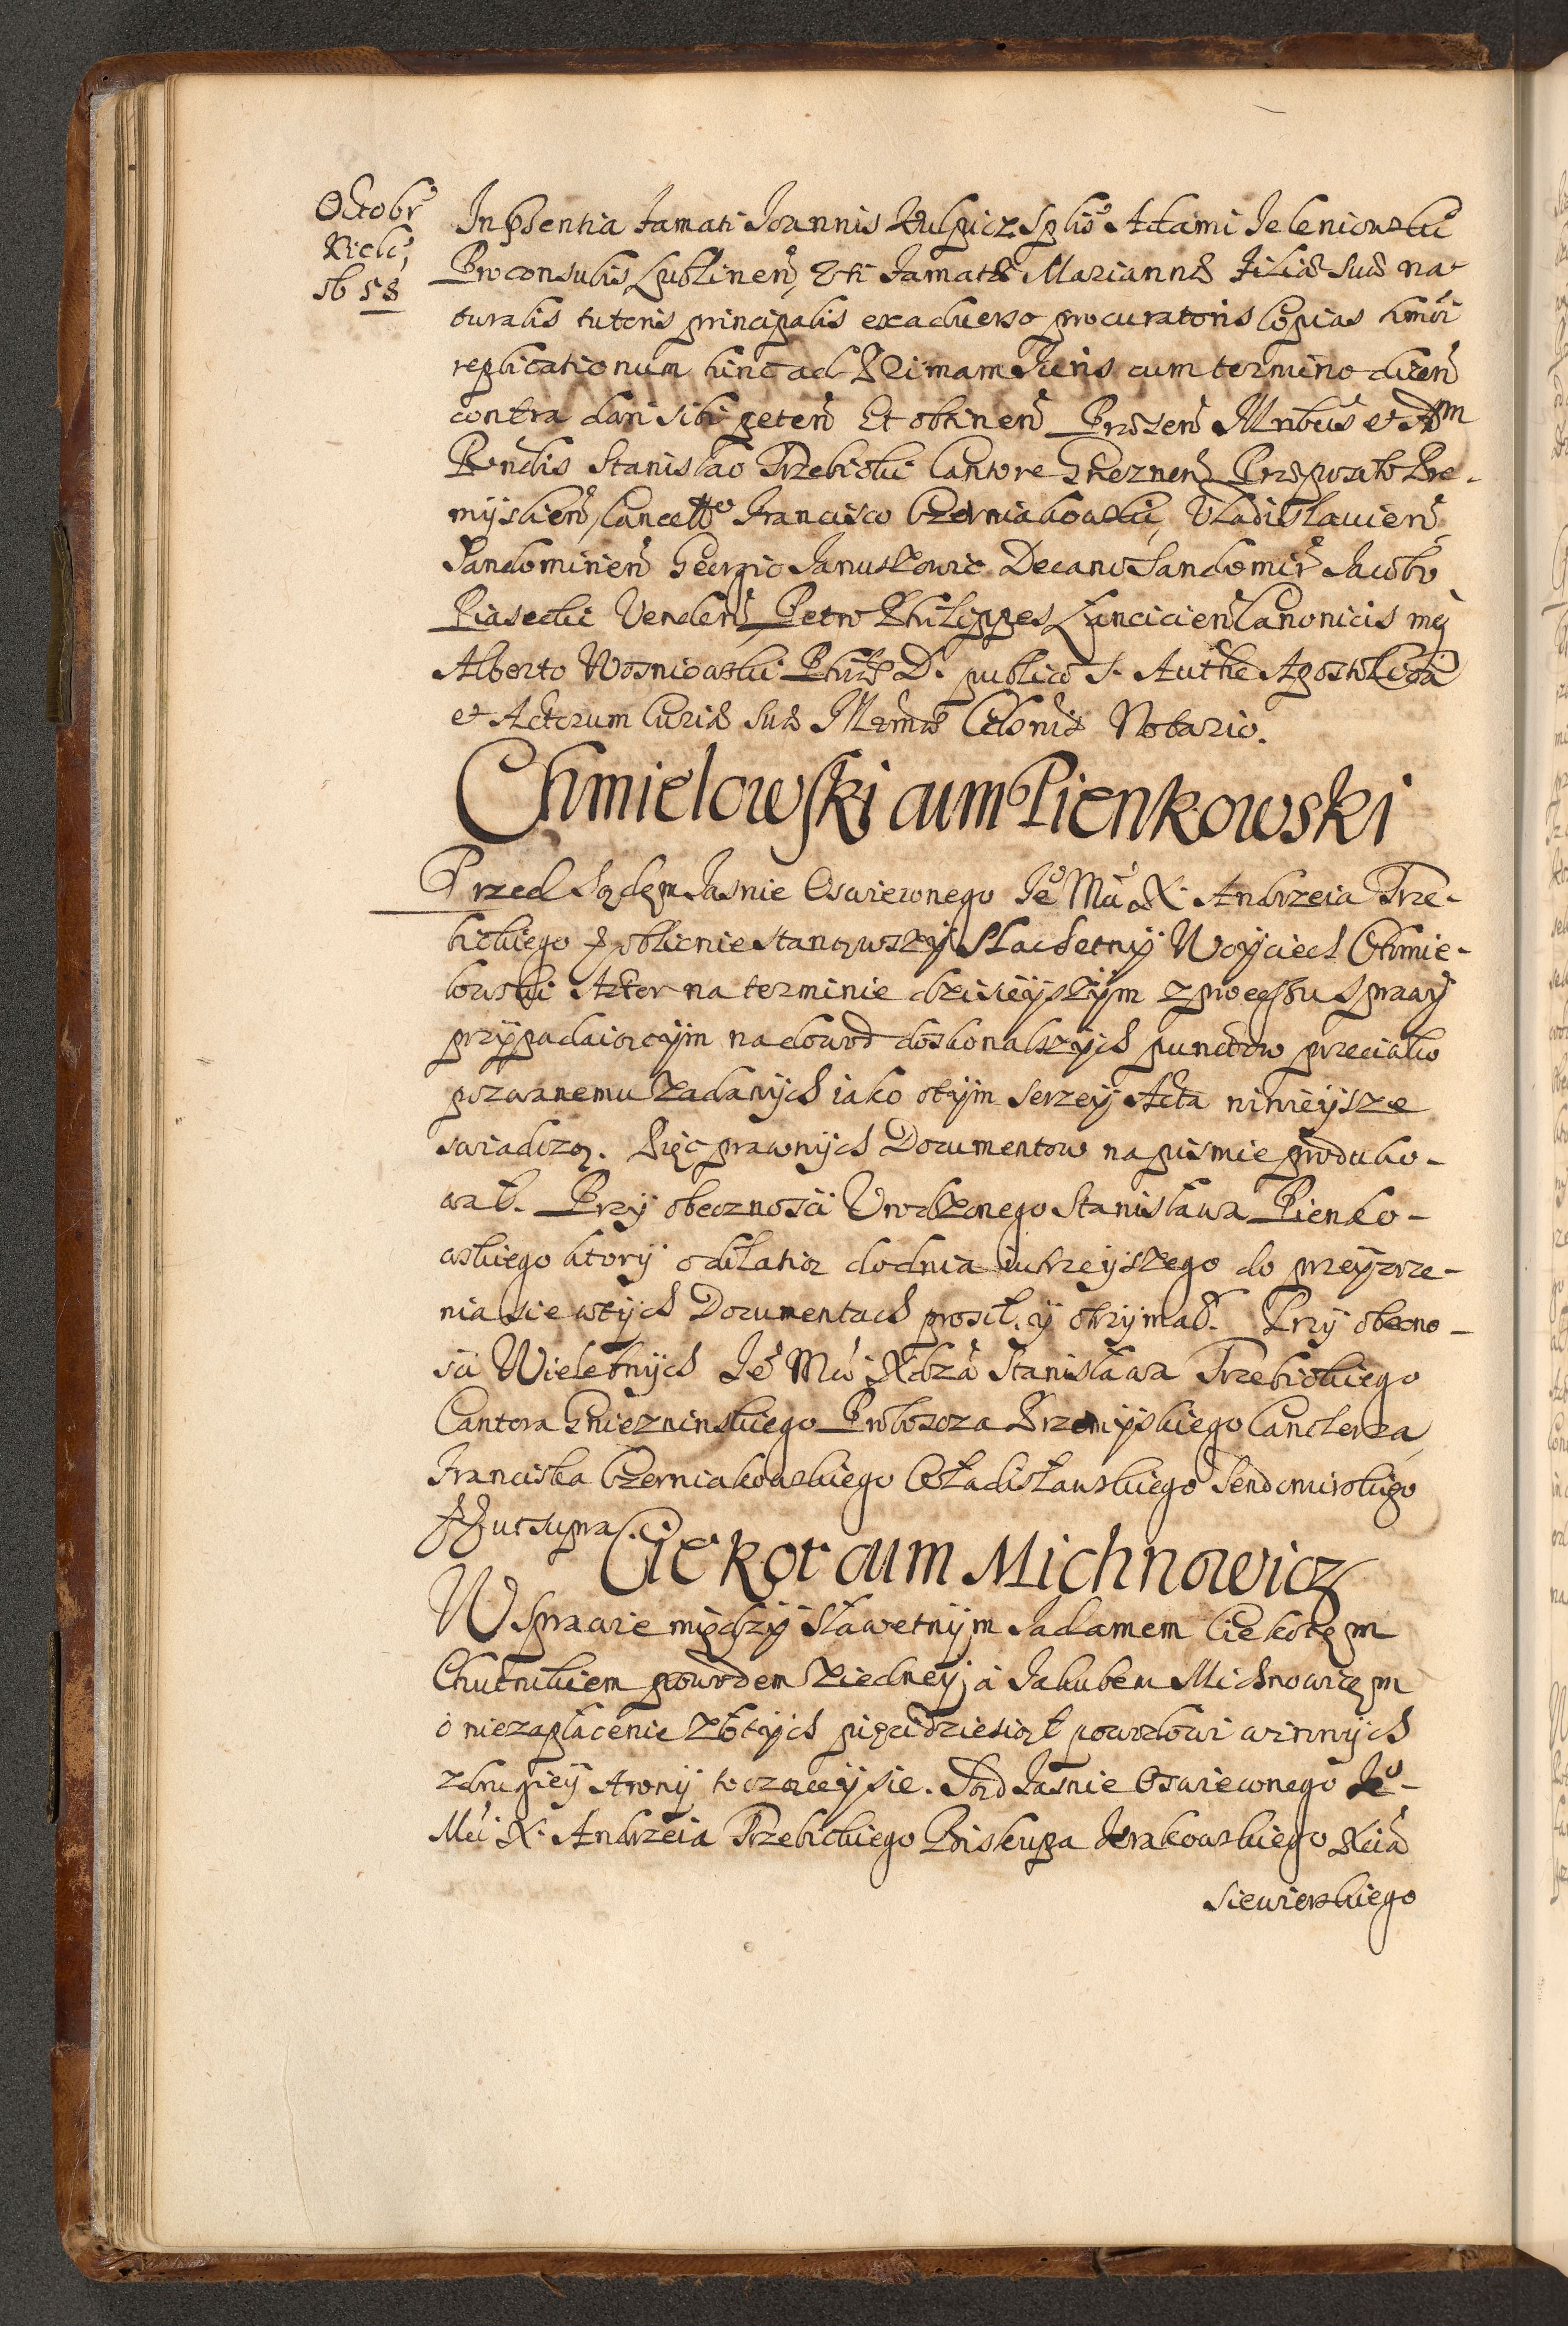 Octobr
Kielc,
58
In Pñsentia Famati Joannis Kulpicz Sptlis Adami Jeleniowski
Proconsulis Lublinen, Uti Famatæ Mariannæ Filiæ Suæ na-
turalis tutoris principalis ex adverso procuratoris Copias hmõi
replicationum hinc ad Primam Juris cum termino dicen
contra dari sibi peten Et obtinen Præsen Illribus et Adm
Rendis Stanislao Trzebicki Cantore Gneznen, Præposito Pre-
mÿslien, Cancello Francisco Czerniakowski, Vladislavien
Sandomirien Georgio Januszowic Decano Sandomir Jacobo
Piasecki Venden, Petro Philippes Lancicien Canonicis mg
Alberto Wosniowski Philæ D. publico S. Authe Apostolica
et Actorum Curiæ Suæ Illrmæ Celsnis Notario.
Chmielowski cum Pienkowski
Przed Sądem Jasnie Oswieconego Je Mci X. Andrzeia Trze-
bickiego oblicnie stanąwszÿ Slachetnÿ Woÿciech Chmie-
lowski Aktor na terminie dzisieÿszÿm z processu sprawÿ
przÿpadaiącÿm na dowod doskonalszÿch punctow przeciwko
pozwanemu zadanÿch iako o tÿm serzeÿ Acta ninieÿsze
swiadczą. Pięc prawnÿch Documentow na pismie produko-
wal. Przÿ obecznosci Urodzonego Stanisława Pienko-
wskiego ktorÿ o dilatią do dnia iutrzeÿszego do przeÿrze-
nia sie w tÿch Documentach prosił, ÿ otrzÿmał. Przÿ obecno-
sci Wielebnÿch Je Mci Xdza Stanisława Trzebickiego
Cantora Gniezninskiego Proboszcza Przemÿskiego Canclerza,
Franciszka Czerniakowskiego Władisławskiego Sendomirskigo
ut supra.
Ciekot cum Michnowicz
W sprawie międzÿ sławetnÿm Jadamem Ciekotęm
Chutnikiem powodem z iedneÿ, a Jakubem Michnowicęm
o niezapłacenie złotÿch pięcidziesiąt powodowi winnÿch
z drugieÿ stronÿ toczączeÿ sie. Sąd Jasnie Oswieconego Je-
Mci X. Andrzeia Trzebickiego Biskupa Krakowskiego Xcia
Siewierskiego